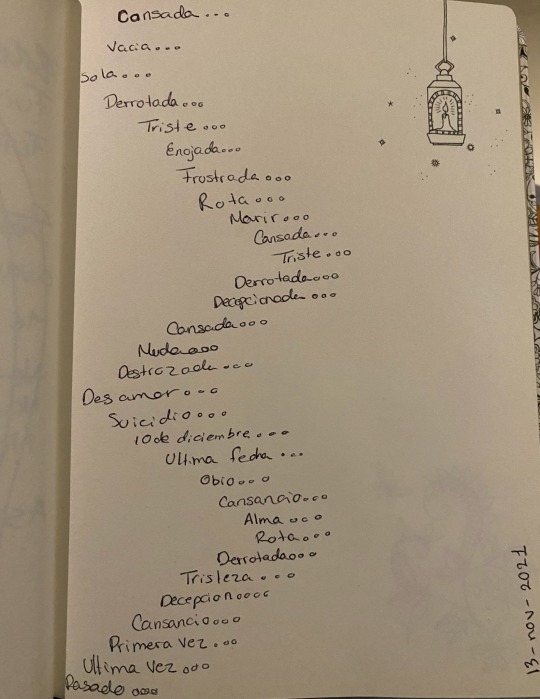 Cansada...
Vacia...
Sola...
Derrotada...
Triste...
Enojada...
Frostrada...
Rota...
Morir...
Cansada...
Triste...
Derrotada...
Decepcionada...
Cansada...
Muda...
Destrozada...
Desamor...
Suicidio....
10 de diciembre....
Ultima fecha...
Obio...
Cansancio...
Alma...
Rota...
Derrotada...
Tristeza...
Decepcion....
Cansancio....
Primera vez...
Ultima vez...
Pasado....
13-nov-2021